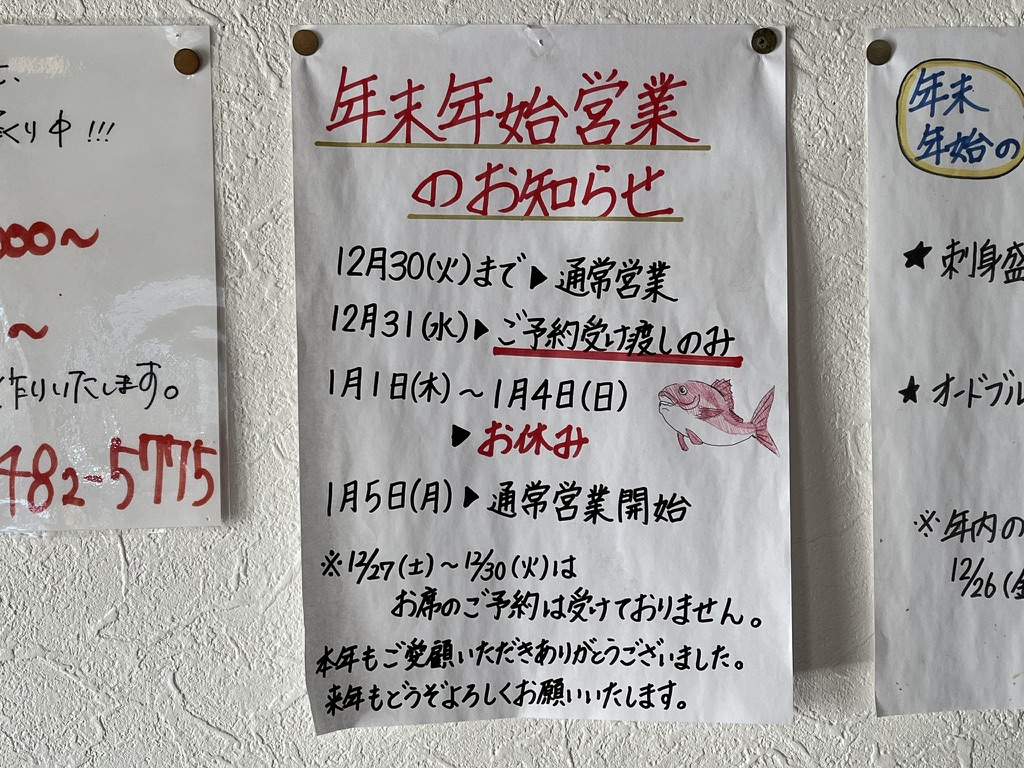 くり中!!!
000〜
〜
作りいたします。
482-5775
年末年始営業
のお知らせ
12月30(火)まで▶通常営業
12月31(水)▶ご予約受け渡しのみ
1月1日(木)〜1月4日(日)
▶お休み
1月5日(月)▶通常営業開始
※12/27(土)〜12/30(火)は
お席のご予約は受けておりません。
本年もご愛顧いただきありがとうございました。
来年もどうぞよろしくお願いいたします。
年末
年始の
★刺身盛
★オードブル
※年内の
12/26(金